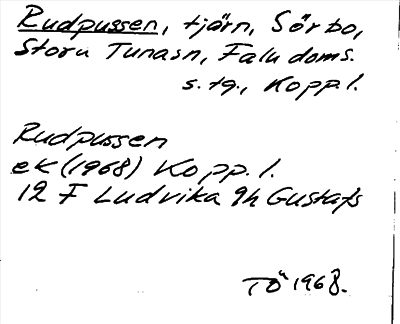 Rudpussen, tjärn, Sörbo,
Stora Tunasn, Falu doms.
s. tg., Kopp. l.
Rudpussen
ek (1968) Kopp. l.
12 F Ludvika 9h Gustafs
TÖ 1968.